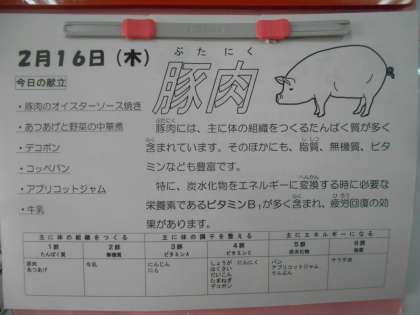 2月16日（木）
ぶたにく
豚肉
今日の献立
・豚肉のオイスターソース焼き
・あつあげと野菜の中華煮
・デコポン
・コッペパン
・アプリコットジャム
・牛乳
豚肉には、主に体の組織をつくるたんぱく質が多く
含まれています。そのほかにも、脂質、無機質、ビタ
ミンなども豊富です。
特に、炭水化物をエネルギーに変換する時に必要な
栄養素であるビタミンB₁が多く含まれ、疲労回復の効
果があります。
主に体の組織をつくる 主に体の調子を整える 主にエネルギーになる
1群 2群 3群 4群 5群 6群
たんぱく質 無機質 ビタミンA ビタミンC 炭水化物 脂質
豚肉 牛乳 にんじん しょうが にんにく パン サラダ油
あつあげ にら はくさい アプリコットジャム
だいこん でんぷん
たまねぎ
デコポン